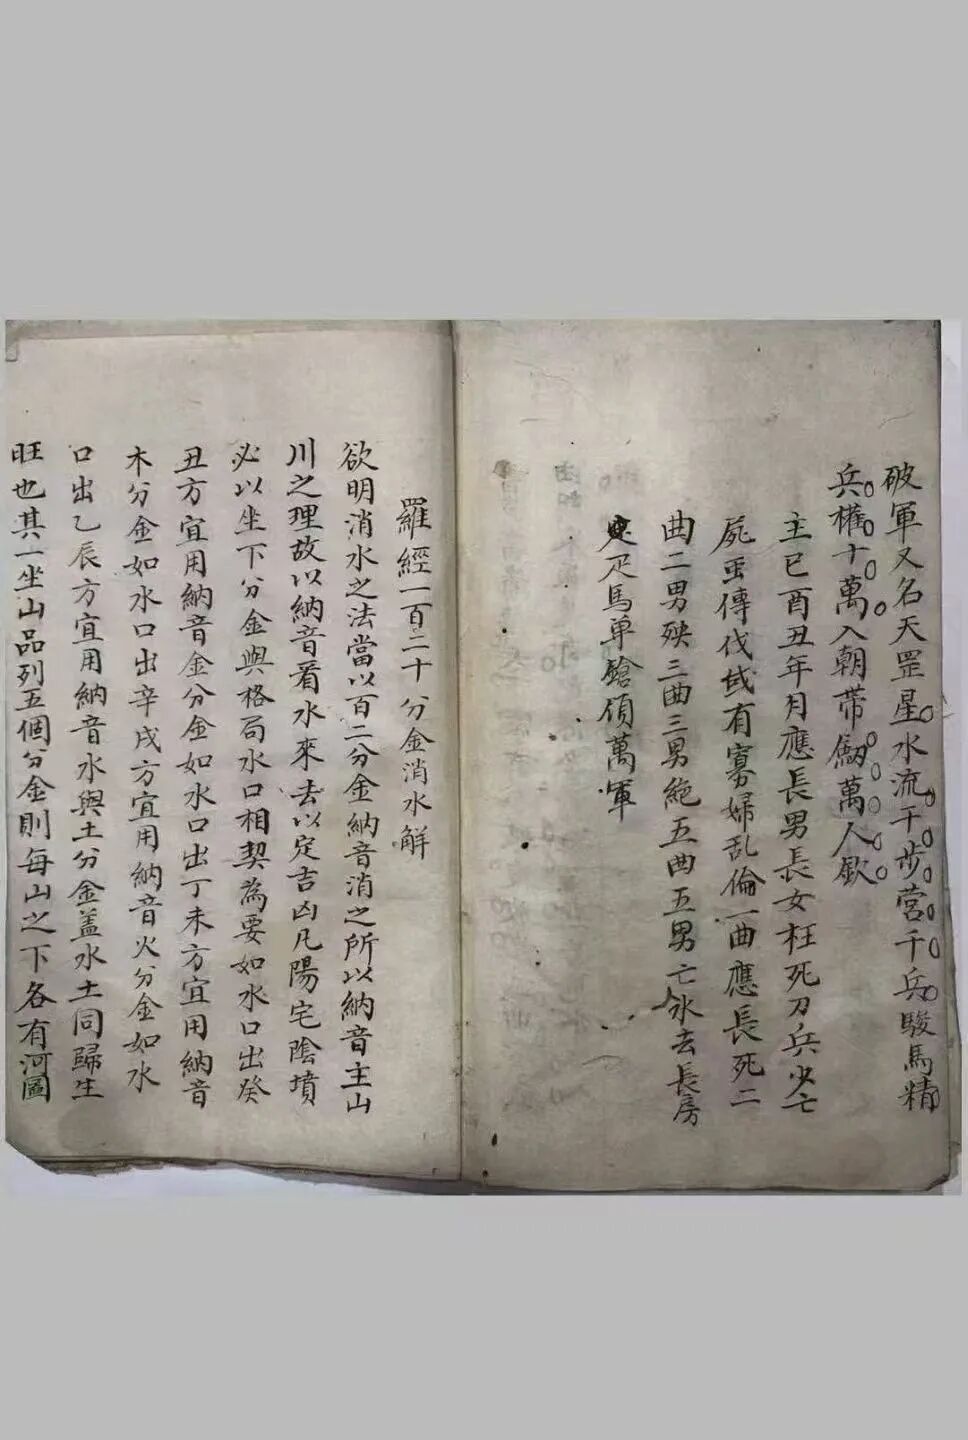 破軍又名天罡星水流千步营千兵駿馬精
兵權十萬入朝带劔萬人欽
主巳酉丑年月應長男長女枉死刀兵少亡
屍虫傳伐或有寡婦乱倫一曲應長死二
曲二男殃三曲三男絶五曲五男亡水去長房
疋馬单鎗領萬軍
羅經一百二十分金消水解
欲明消水之法當以百二分金納音消之所以納音主山
川之理故以納音看水來去以定吉凶凡陽宅陰墳
必以坐下分金與格局水口相契為要如水口出癸
丑方宜用納音金分金如水口出丁未方宜用納音
木分金如水口出辛戌方宜用納音火分金如水
口出乙辰方宜用納音水與土分金盖水土同歸生
旺也其一坐山品列五個分金則每山之下各有河圖